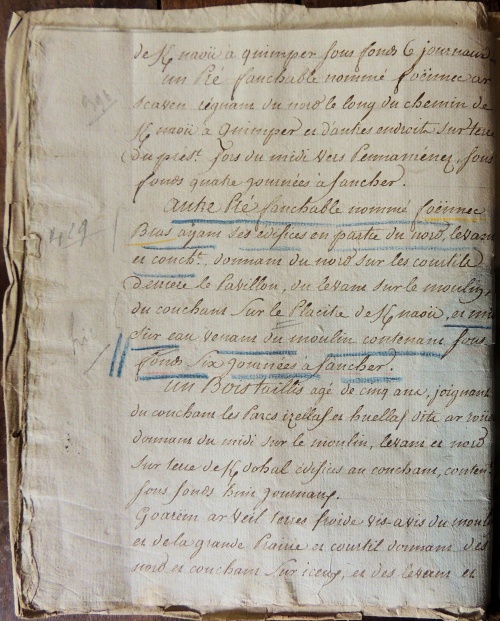 de K/naoü a quimper sous fonds 6 journaux
un Pré fauchable nommé foënnec ar
scaven cegnant du nord le long du chemin de
K/naoü a Quimper et d'autres endroits sur terre
du prést. fors du midi vers Pennaménez, sous
fonds quatre journées à faucher.
Autre Pré fauchable nommé foënnec
Bras ayant ses édifices en partie du nord, levant
et coucht. donnant du nord sur les courtils
derriere le Pavillon, du levant sur le moulin,
du couchant sur le Placitre de K/naoü, et midi
sur eau venant du moulin contenant sous
fonds six journées à faucher.
un Bois taillis agé de cinq ans, joignant
du couchant les Parcs izellaf et huellaf
donnant du midi sur le moulin, levant et nord
sur terre de K/dohal édifices au couchant, conten
sous fonds huit journaux.
Goarem ar veil terres froide vis-avis du moulin
et de la grande Prairie et courtil donnant des
nord et couchant sur iceux, et des levant et
449